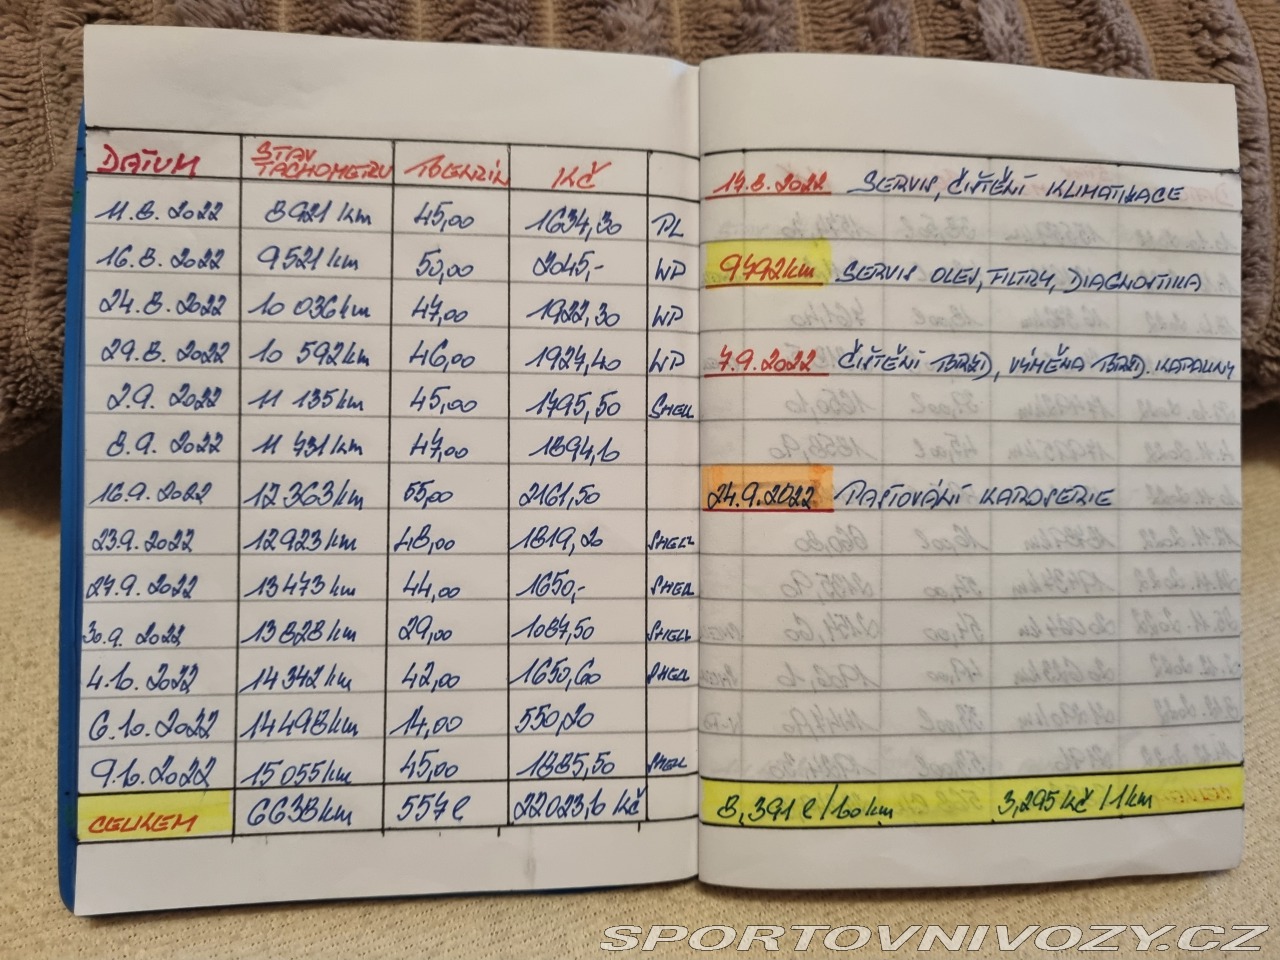 DATUM STAV TACHOMETRU BENZIN KČ
11.8.2022 8921 km 45,00 1634,30 PL
16.8.2022 9521 km 50,00 2045,- WP
24.8.2022 10 036 km 47,00 1922,30 WP
29.8.2022 10 592 km 46,00 1927,40 WP
2.9.2022 11 135 km 45,00 1795,50 SHELL
8.9.2022 11 731 km 47,00 1894,10
16.9.2022 12 363 km 55,00 2161,50
23.9.2022 12923 km 48,00 1819,20 SHELL
27.9.2022 13473 km 44,00 1650,- SHELL
30.9.2022 13828 km 29,00 1087,50 SHELL
4.10.2022 14342 km 42,00 1650,60 SHELL
6.10.2022 14498 km 14,00 550,20
9.10.2022 15055 km 45,00 1885,50 SHELL
CELKEM 6638 km 557 l 22023,10 KČ
17.8.2022 SERVIS, ČIŠTĚNÍ KLIMATIZACE
9492 km SERVIS OLEJ, FILTRY, DIAGNOSTIKA
7.9.2022 ČIŠTĚNÍ BRZD, VÝMĚNA BRZD. KAPALINY
24.9.2022 PASTOVÁNÍ KAROSERIE
8,391 l/100 km 3,295 KČ/1 km
SPORTOVNIVOZY.CZ